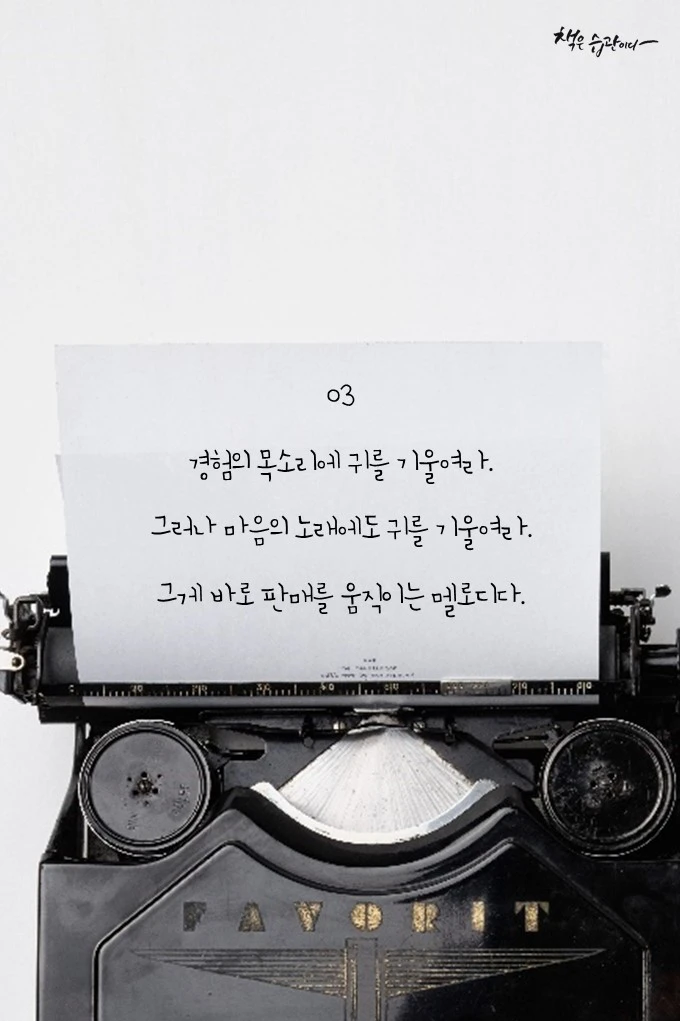 책은 습관이다
03
경험의 목소리에 귀를 기울여라.
그러나 마음의 노래에도 귀를 기울여라.
그게 바로 판매를 움직이는 멜로디다.
FAVORIT